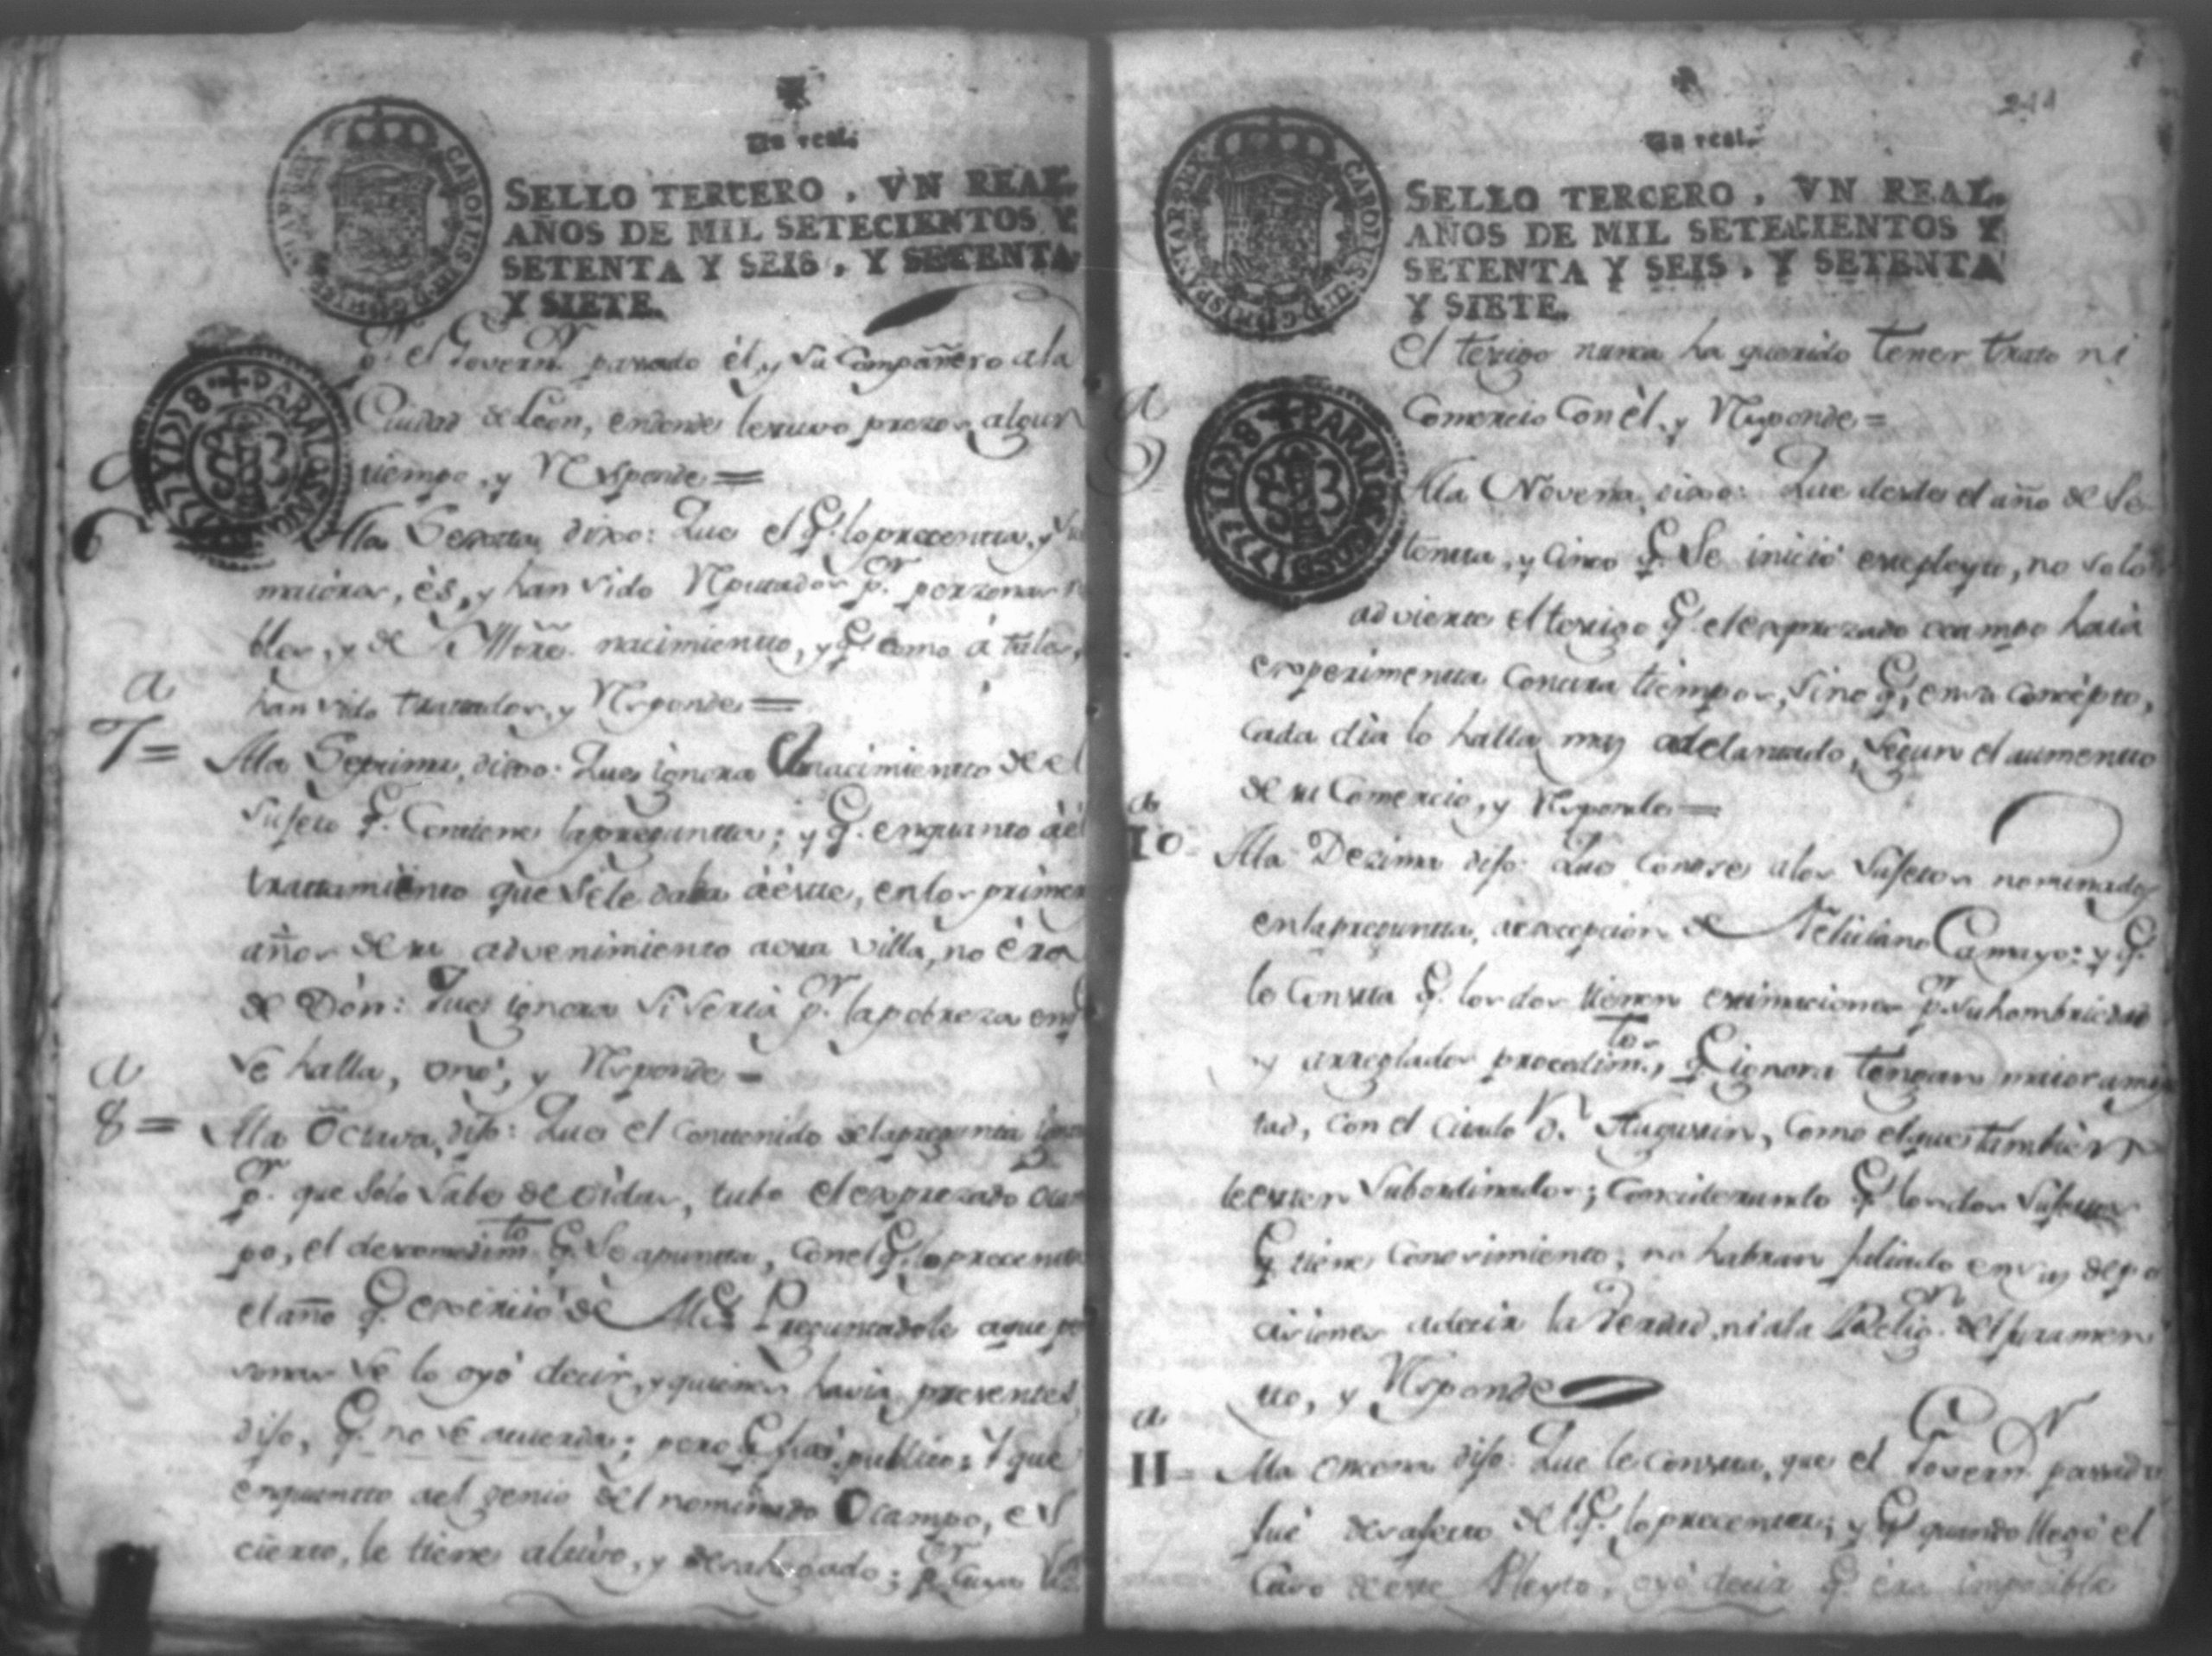 Un real.
SELLO TERCERO, VN REAL,
AÑOS DE MIL SETECIENTOS Y
SETENTA Y SEIS, Y SETENTA
Y SIETE.
CAROLUS III D G HISPANIAR REX
PARA LOS AÑOS
p.r el Govern.r passado él, y su Compañero ala
Ciudad de Leon, endonde lestuvo presos algun
tiempo, y Responde =
6 a Ala Sexta dixo: Que el q.e lo precenta, y
maiores, és, y han sido Reputados p.r personas
bles, y de nacimiento, y q.e como á tales,
han sido tratados, y Responde =
a
7 = Ala Septima, dixo: Que ignora el nacimiento de el
sujeto q.e Contiene la pregunta; y q.e enquanto áel
tratamiento que sele daba áéste, enlos primer
años de su advenimiento aesta Villa, no éra
de Dón: Que ignora si seria p.r la pobreza en q
se halla, onó, y Responde =
a
8 = Ala Octava, dijo: Que el Contenido dela pregunta
p.r que solo sabe de oidas, tubo el expresado Ocam
po, el descomedim.to q.e se apunta, con el q.e lo precenta
el año q.e exerció de Preguntadole aque per
sonas se lo oyó decir, y quienes havia presentes,
dijo, q.e no se acuerda; pero q.e fué publico: Y que
enquanto ael genio del nominado Ocampo, es
cierto, le tiene altivo, y desahogado; p.r cuya
211
Un real.
SELLO TERCERO, VN REAL,
AÑOS DE MIL SETECIENTOS Y
SETENTA Y SEIS, Y SETENTA
Y SIETE.
CAROLUS III D G HISPANIAR REX
PARA LOS AÑOS
El testigo nunca ha querido tener trato ni
Comercio con él, y Responde =
a
9 Ala Novena, dixo: Que desde el año de se
tenta, y cinco q.e se inició este pleyto, no solo
advierte el testigo q.e el expresado ocampo haia
experimenta Contra tiempos, sino q.e, en su concépto,
cada dia lo halla muy adelantado, segun el aumento
de su Comercio, y Responde =
a
10 = Ala Dezima dijo: Que Conoce alos sujetos nominados
enla pregunta, aexcepcion de Feliciano Camayo: y q.e
le Consta q.e los dos tienen estimaciones p.r su hombriedad
y arreglados procedim.tos, q.e ignora tengan maior amis
tad, con el citado D.n Augustin, como el que tambien
le esten subordinados; Considerando q.e los dos sujetos
q.e tiene Conocimiento; no habran faltado en sus depo
ciciones adecir la Verdad, ni ala Relig.on del juramen
to, y Responde
a
11 = Ala oncena dijo: Que le Consta, que el Govern.r passado
fué desafecto del q.e lo precenta; y q.e quando llegó el
Caso de este Pleyto, oyó decir q.e éra imposible